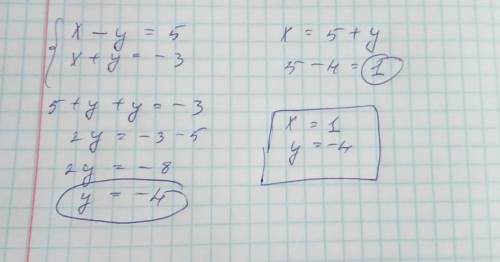 x - y = 5
x + y = -3
5 + y + y = -3
2y = -3 - 5
2y = -8
y = -4
x = 5 + y
5 - 4 = 1
x = 1
y = -4